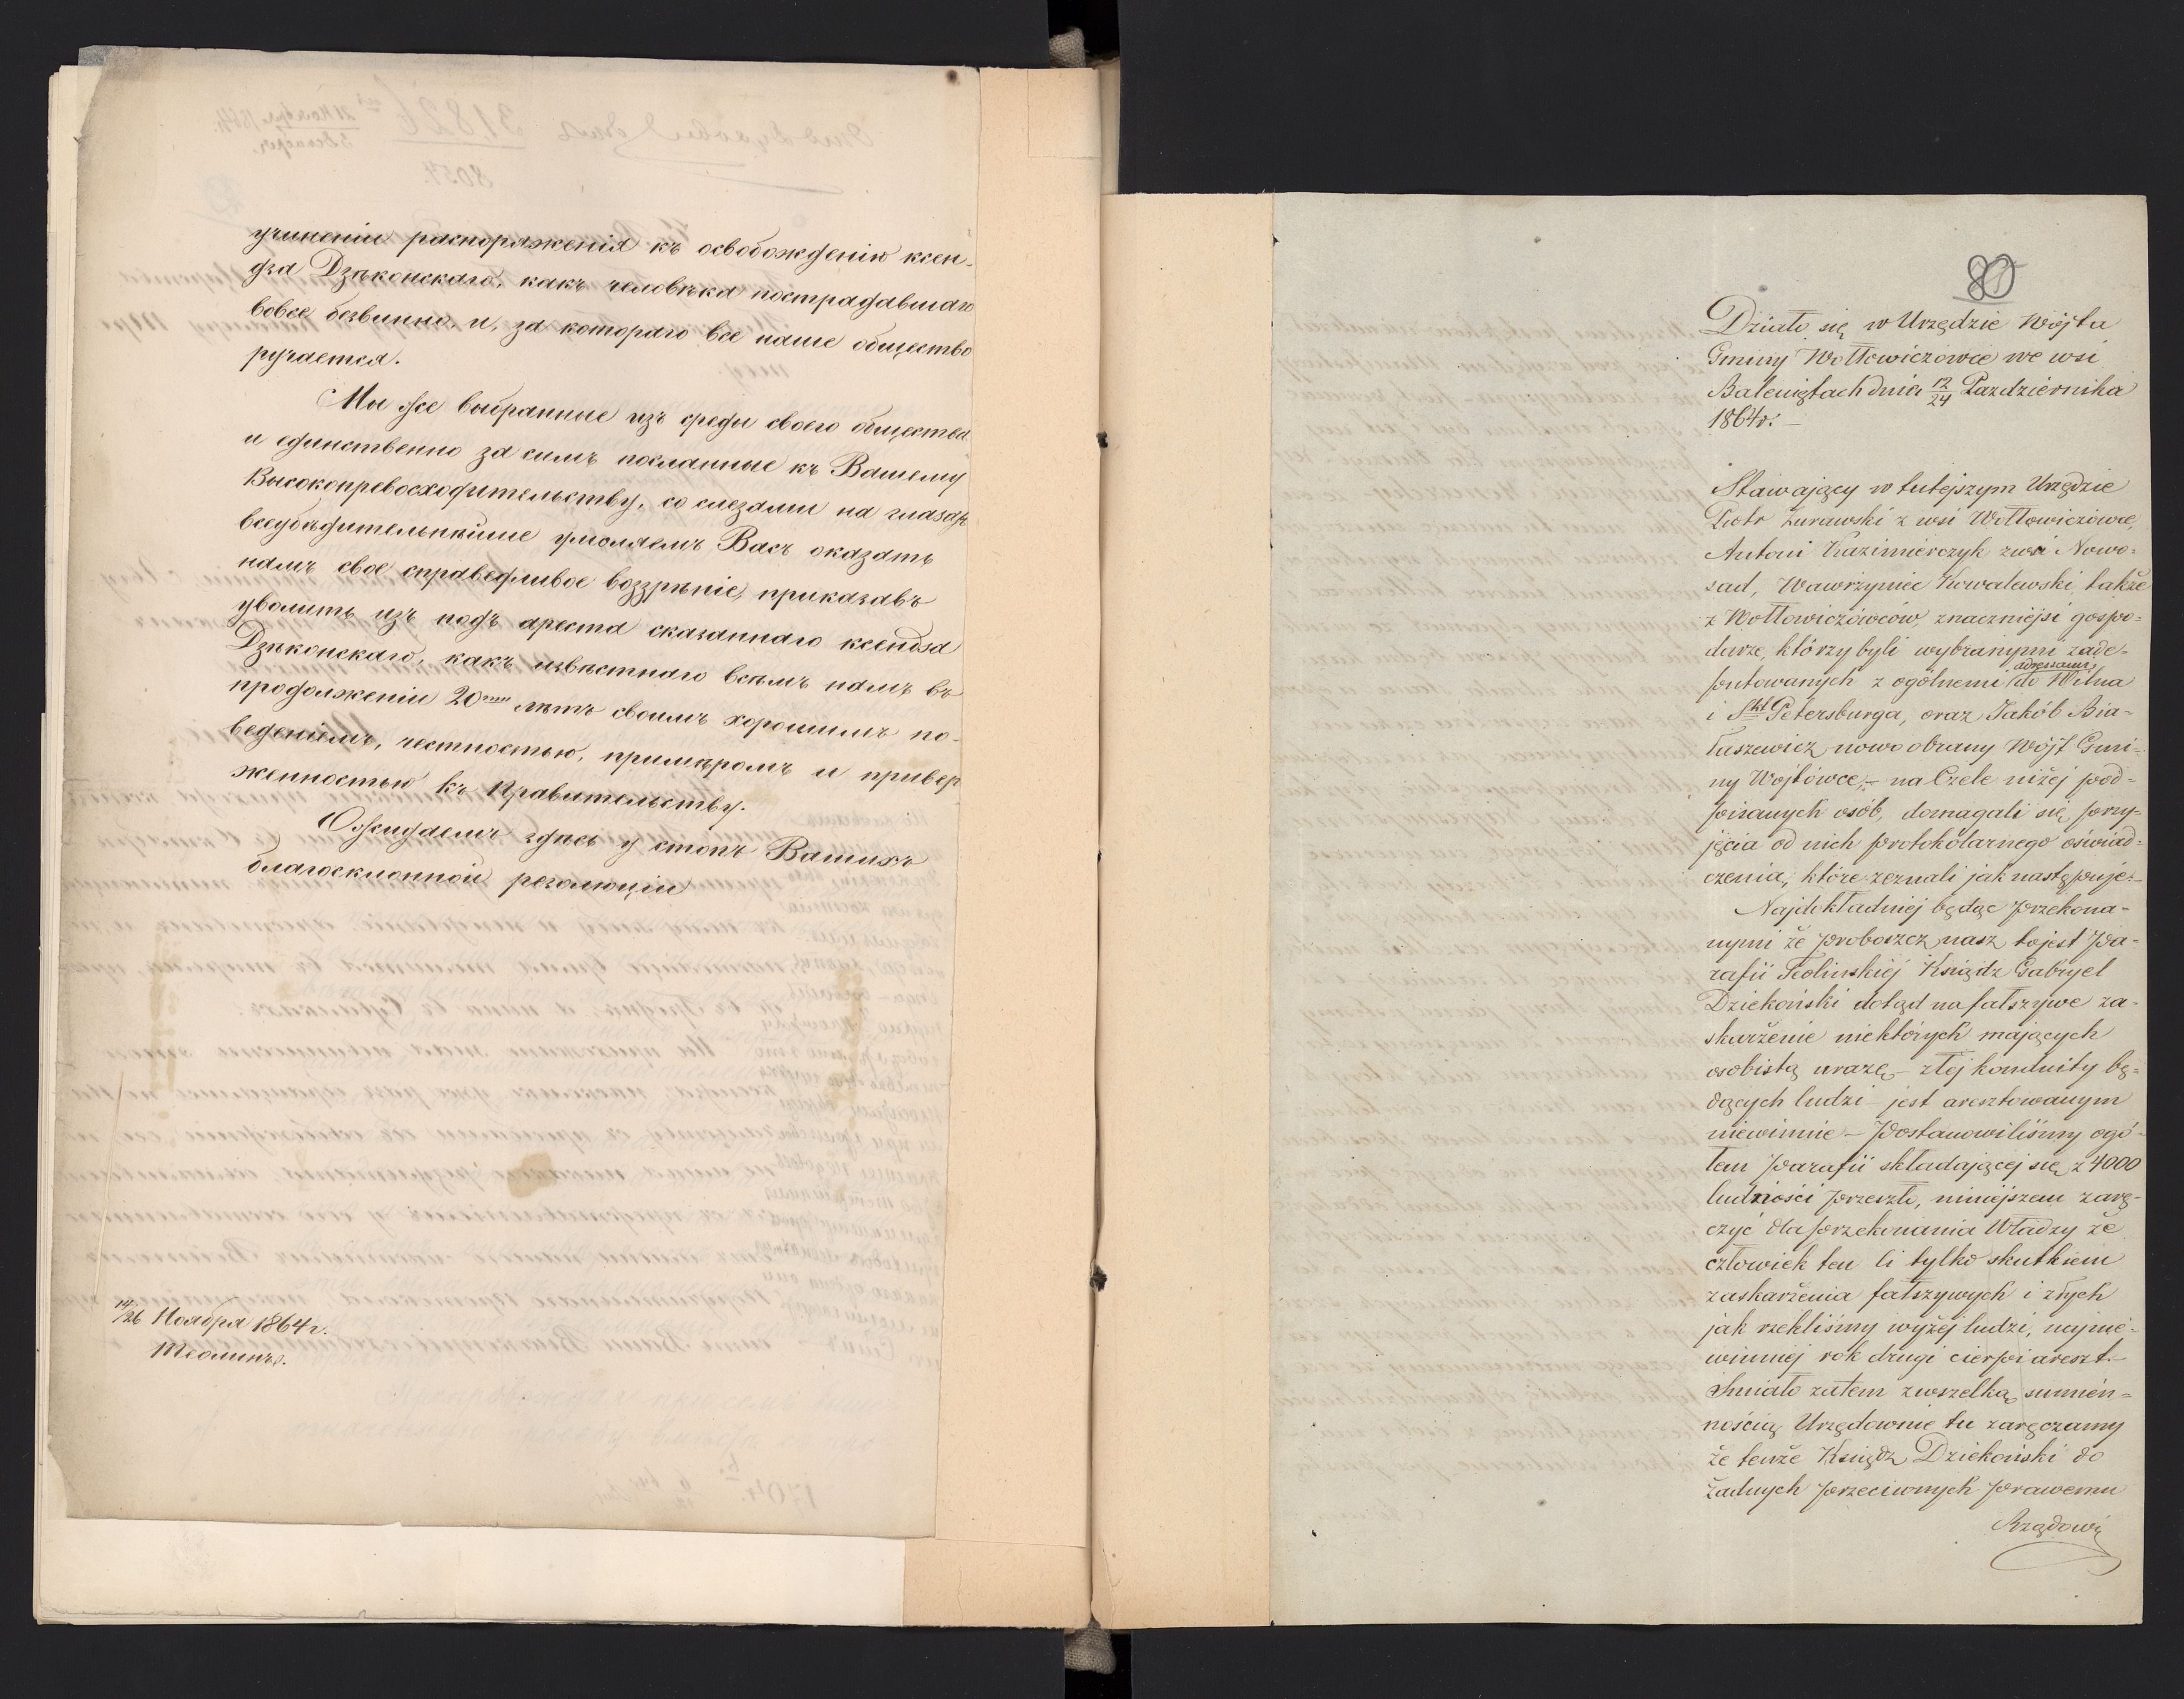 учиненіи распоряженія къ освобожденію ксен-
дза Дзѣконскаго, какъ человѣка пострадавшаго
вовсе безвинно, и, за котораго все наше общество
ручается.
Мы же выбранные изъ среды своего общества
и единственно за симъ посланные къ Вашему
Высокопревосходительству, со слезами на глазахъ
всеубѣдительнѣйше умоляемъ Васъ оказать
намъ свое справедливое воззрѣніе, приказавъ
уволить изъ подъ ареста сказаннаго ксендза
Дзѣконскаго, какъ извѣстнаго всѣмъ намъ въ
продолженіи 20ти лѣтъ своимъ хорошимъ по-
веденіемъ, честностью, примѣромъ и привер
женностью къ Правительству.
Ожидаемъ здѣсь у стопъ Вашихъ
благосклонной резолюціи
14/26 Ноября 1864 г.
Теолинъ.
80
Działo się w Urzędzie Wójta
Gminy Wołłowiczowce we wsi
Baleniętach dnia 12/24 Października
1864 r: –
Stawający w tutejszym Urzędzie
Piotr Żurawski z wsi Wołłowiczowce,
Antoni Kazimierczyk z wsi Nowo-
sad, Wawrzyniec Kowalewski, także
z Wołłowiczowców, znaczniejsi gospo-
darze, którzy byli wybranymi zade-
putowanych z ogólnemi adressami do Wilna
i Skt Petersburga, oraz Jakób Bia-
łuszewicz nowo obrany Wójt Gmi-
ny Wojtówce, – na Czele niżej pod-
pisanych osób, domagali się przy-
jęcia od nich protokólarnego oświad-
czenia, które zeznali jak następuje: –
Najdokładniej będąc przekona-
nymi że proboszcz nasz to jest pa-
rafii Teolinskiéj Ksiądz Gabryel
Dziekoński dotąd na fałszywe za-
skarżenie niektórych mających
osobistą urazę – złej konduity bę-
dących ludzi – jest aresztowanym
niewinnie – Postanowiliśmy ogó-
łem parafii składającej się z 4000
ludności przeszło, niniejszem zarę-
czyć dla przekonania Władzy że
człowiek ten li tylko skutkiem
zaskarżenia fałszywych i złych
jak rzekliśmy wyżej ludzi, najnie-
winniej rok drugi cierpi areszt. –
Śmiało zatem z wszelką sumien-
nością Urzędownie tu zaręczamy
że tenże Ksiądz Dziekoński do
żadnych przeciwnych prawemu
Rządowi